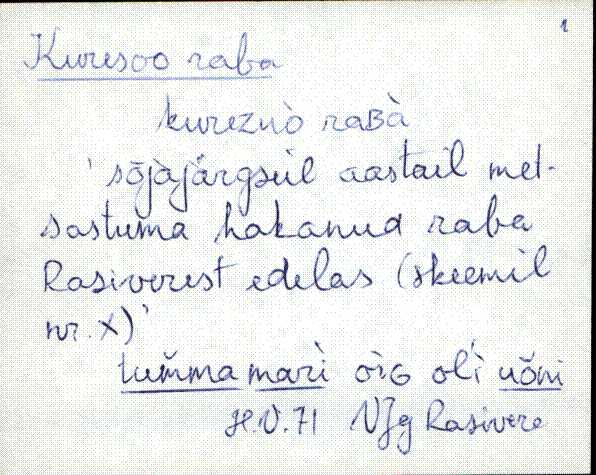 1
Kuresoo raba
kurezùò raʙà
'sõjajärgseil aastail met-
sastuma hakanud raba
Rasiverest edelas (skeemil
nr. X)'
tum̆ma mari òiɢ oĺ uõ̆ni
H.V.71 VJg Rasivere